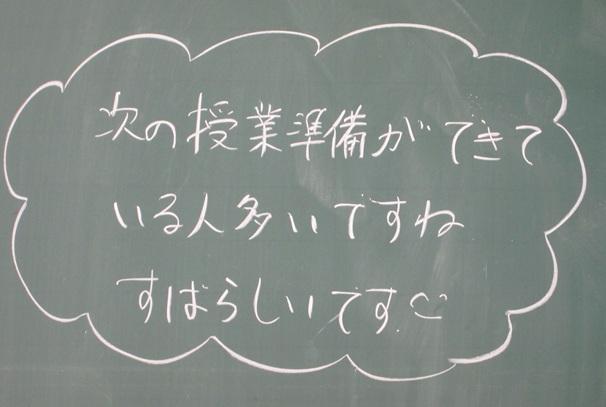 次の授業準備ができて
いる人多いですね
すばらしいです。